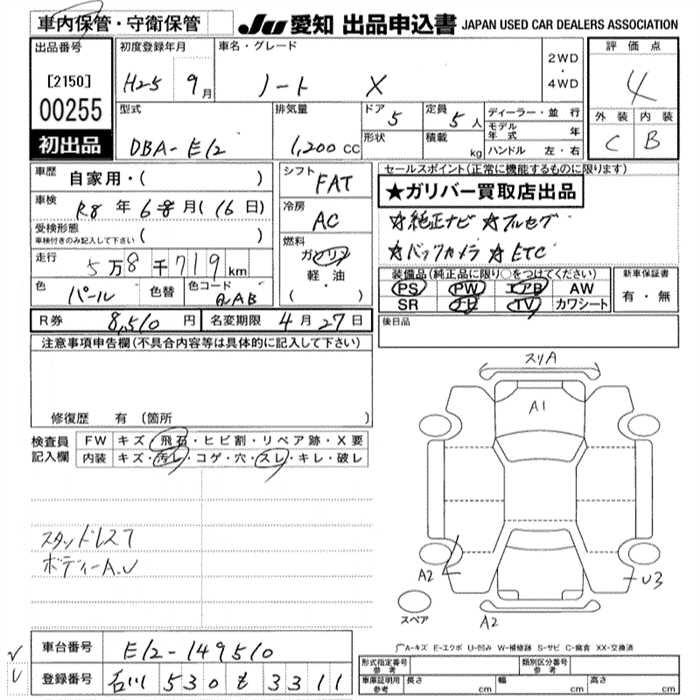 車内保管・守衛保管 JU 愛知 出品申込書 JAPAN USED CAR DEALERS ASSOCIATION
出品番号 初度登録年月 車名・グレード 2WD・4WD 評価点
[2150] H25 9月 ノート X 4
00255 型式 排気量 ドア 5 定員 5人 ディーラー・並行 外装 内装
初出品 DBA-E12 1,200cc 形状 積載 kg モデル年式 年 C B
ハンドル 左・右
車歴 自家用・( ) シフト FAT セールスポイント(正常に機能するものに限ります)
車検 R8年 6月(16日) 冷房 AC ★ガリバー買取店出品
受検形態 車検付きのみ記入して下さい ( ) ☆純正ナビ ☆フルセグ
走行 5万8千719km 燃料 ガソリン ☆バックカメラ ☆ETC
色 パール 色替 色コード QAB 軽油 ( ・ ) 装備品(純正品に限り○をつけてください) 新車保証書
PS PW エアB AW 有・無
SR ナビ TV カワシート
R券 8,510円 名変期限 4月27日 後日品
注意事項申告欄(不具合内容等は具体的に記入して下さい)
スリA
A1
修復歴 有 (箇所
検査員記入欄 FW キズ・飛石・ヒビ割・リペア跡・X要
内装 キズ・汚レ・コゲ・穴・スレ・キレ・破レ
スタッドレス7
ボディーA.U
A2 U3
スペア A2
A-キズ E-エクボ U-凹み W-補修跡 S-サビ C-腐食 XX-交換済
車台番号 E12-149510
形式指定番号 参考 類別区分番号 参考
登録番号 石川 530 せ 3311
車庫証明用 参考 長さ cm 幅 cm 高さ cm